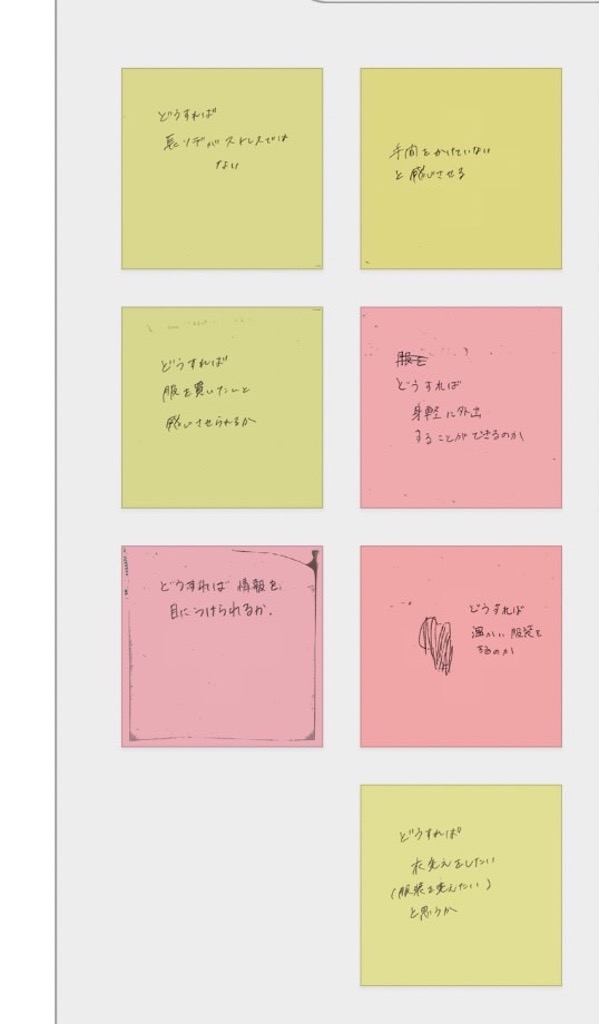 どうすれば
長ソデがストレスでは
ない
手間をかけていない
と感じさせる
どうすれば
服を買いたいと
感じさせられるか
服を
どうすれば
身軽に外出
することができるのか
どうすれば 情報を
目につけられるか.
どうすれば
温かい服装を
するのか
どうすれば
衣変えをしたい
(服装を変えたい)
と思うか